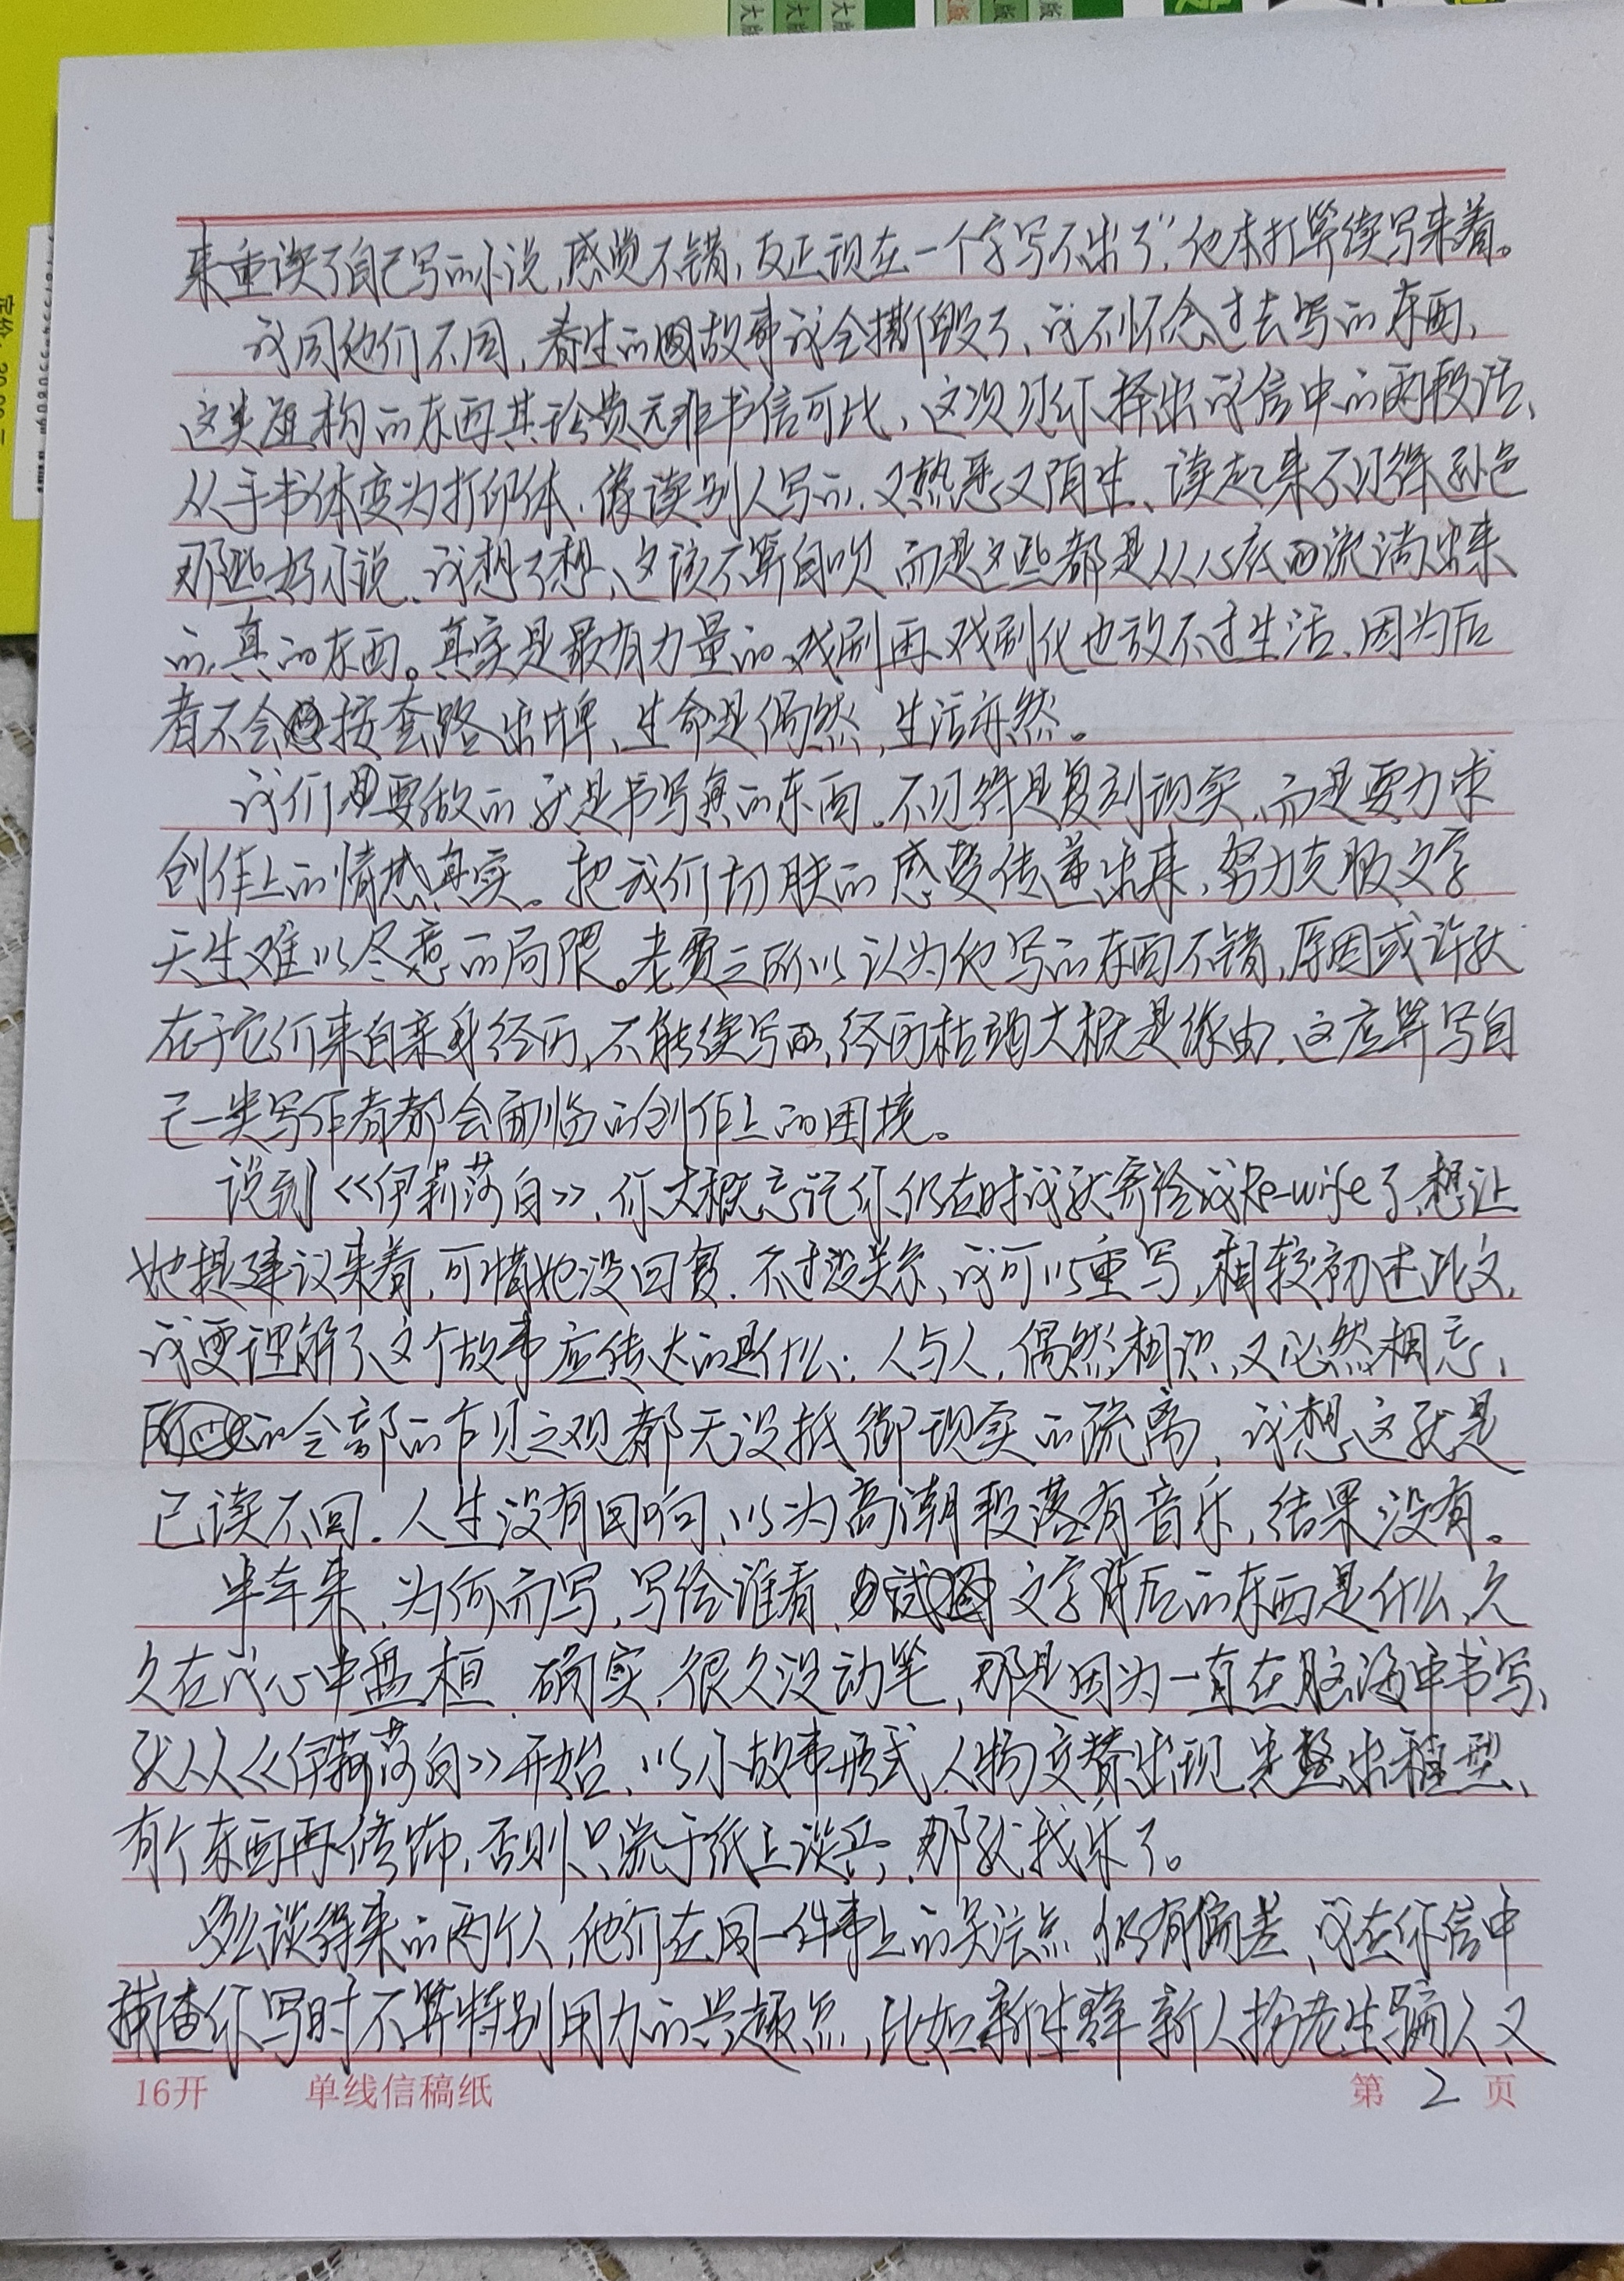 大版
大版
大版
版
版
版
定价
来重读了自己写的小说,感觉不错,反正现在一个字写不出了”,他本打算续写来着。
我同他们不同,春生的故事我全撕毁了、我不怀念过去写的东西、
这类虚构的东西其珍贵远非书信可比、这次见你择出我信中的两段话、
从手书体变为打印体,像读别人写的,又熟悉又陌生、读起来不见得逊色
那些好小说、我想了想、这该不算自吹,而是这些都是从心底里流淌出来
的,真的东西。真实是最有力量的,戏剧再戏剧化也敌不过生活、因为后
者不会按套路出牌、生命是偶然,生活亦然。
我们要做的就是书写真的东西。不见得是复刻现实,而是要力求
创作上的情感真实。把我们切肤的感受传递出来,努力克服文字
天生难以尽意的局限。老费之所以认为他写的东西不错,原因或许就
在于它们来自亲身经历,不能续写的,经历枯竭大概是缘由,这应算写自
己一类写作者都会面临的创作上的困境。
说到《伊莉莎白》,你大概忘记你仍在时我就寄给我Re-wife了,想让
她提建议来着,可惜她没回复,不过没关系、我可以重写,相较初述此文,
我更理解了这个故事应传达的是什么:人与人,偶然相识、又必然相忘、
的全部的乍见之欢都无没抵御现实的疏离,我想这就是
已读不回.人生没有回响、以为高潮段落有音乐,结果没有。
半年来,为何而写,写给谁看,试图文字背后的东西是什么、久
久在我心中盘桓.确实,很久没动笔,那是因为一直在脑海中书写、
就从《伊莉莎白》开始、以小故事形式、人物交替出现,完整出雏型、
有个东西再修饰,否则只流于纸上谈兵,那就我乐了。
多么谈得来的两个人,他们在同一件事上的关注点仍有偏差,我在你信中
捕查你写时不算特别用力的兴趣点,比如新生群新人扮老生骗人又
16开 单线信稿纸 第 2 页